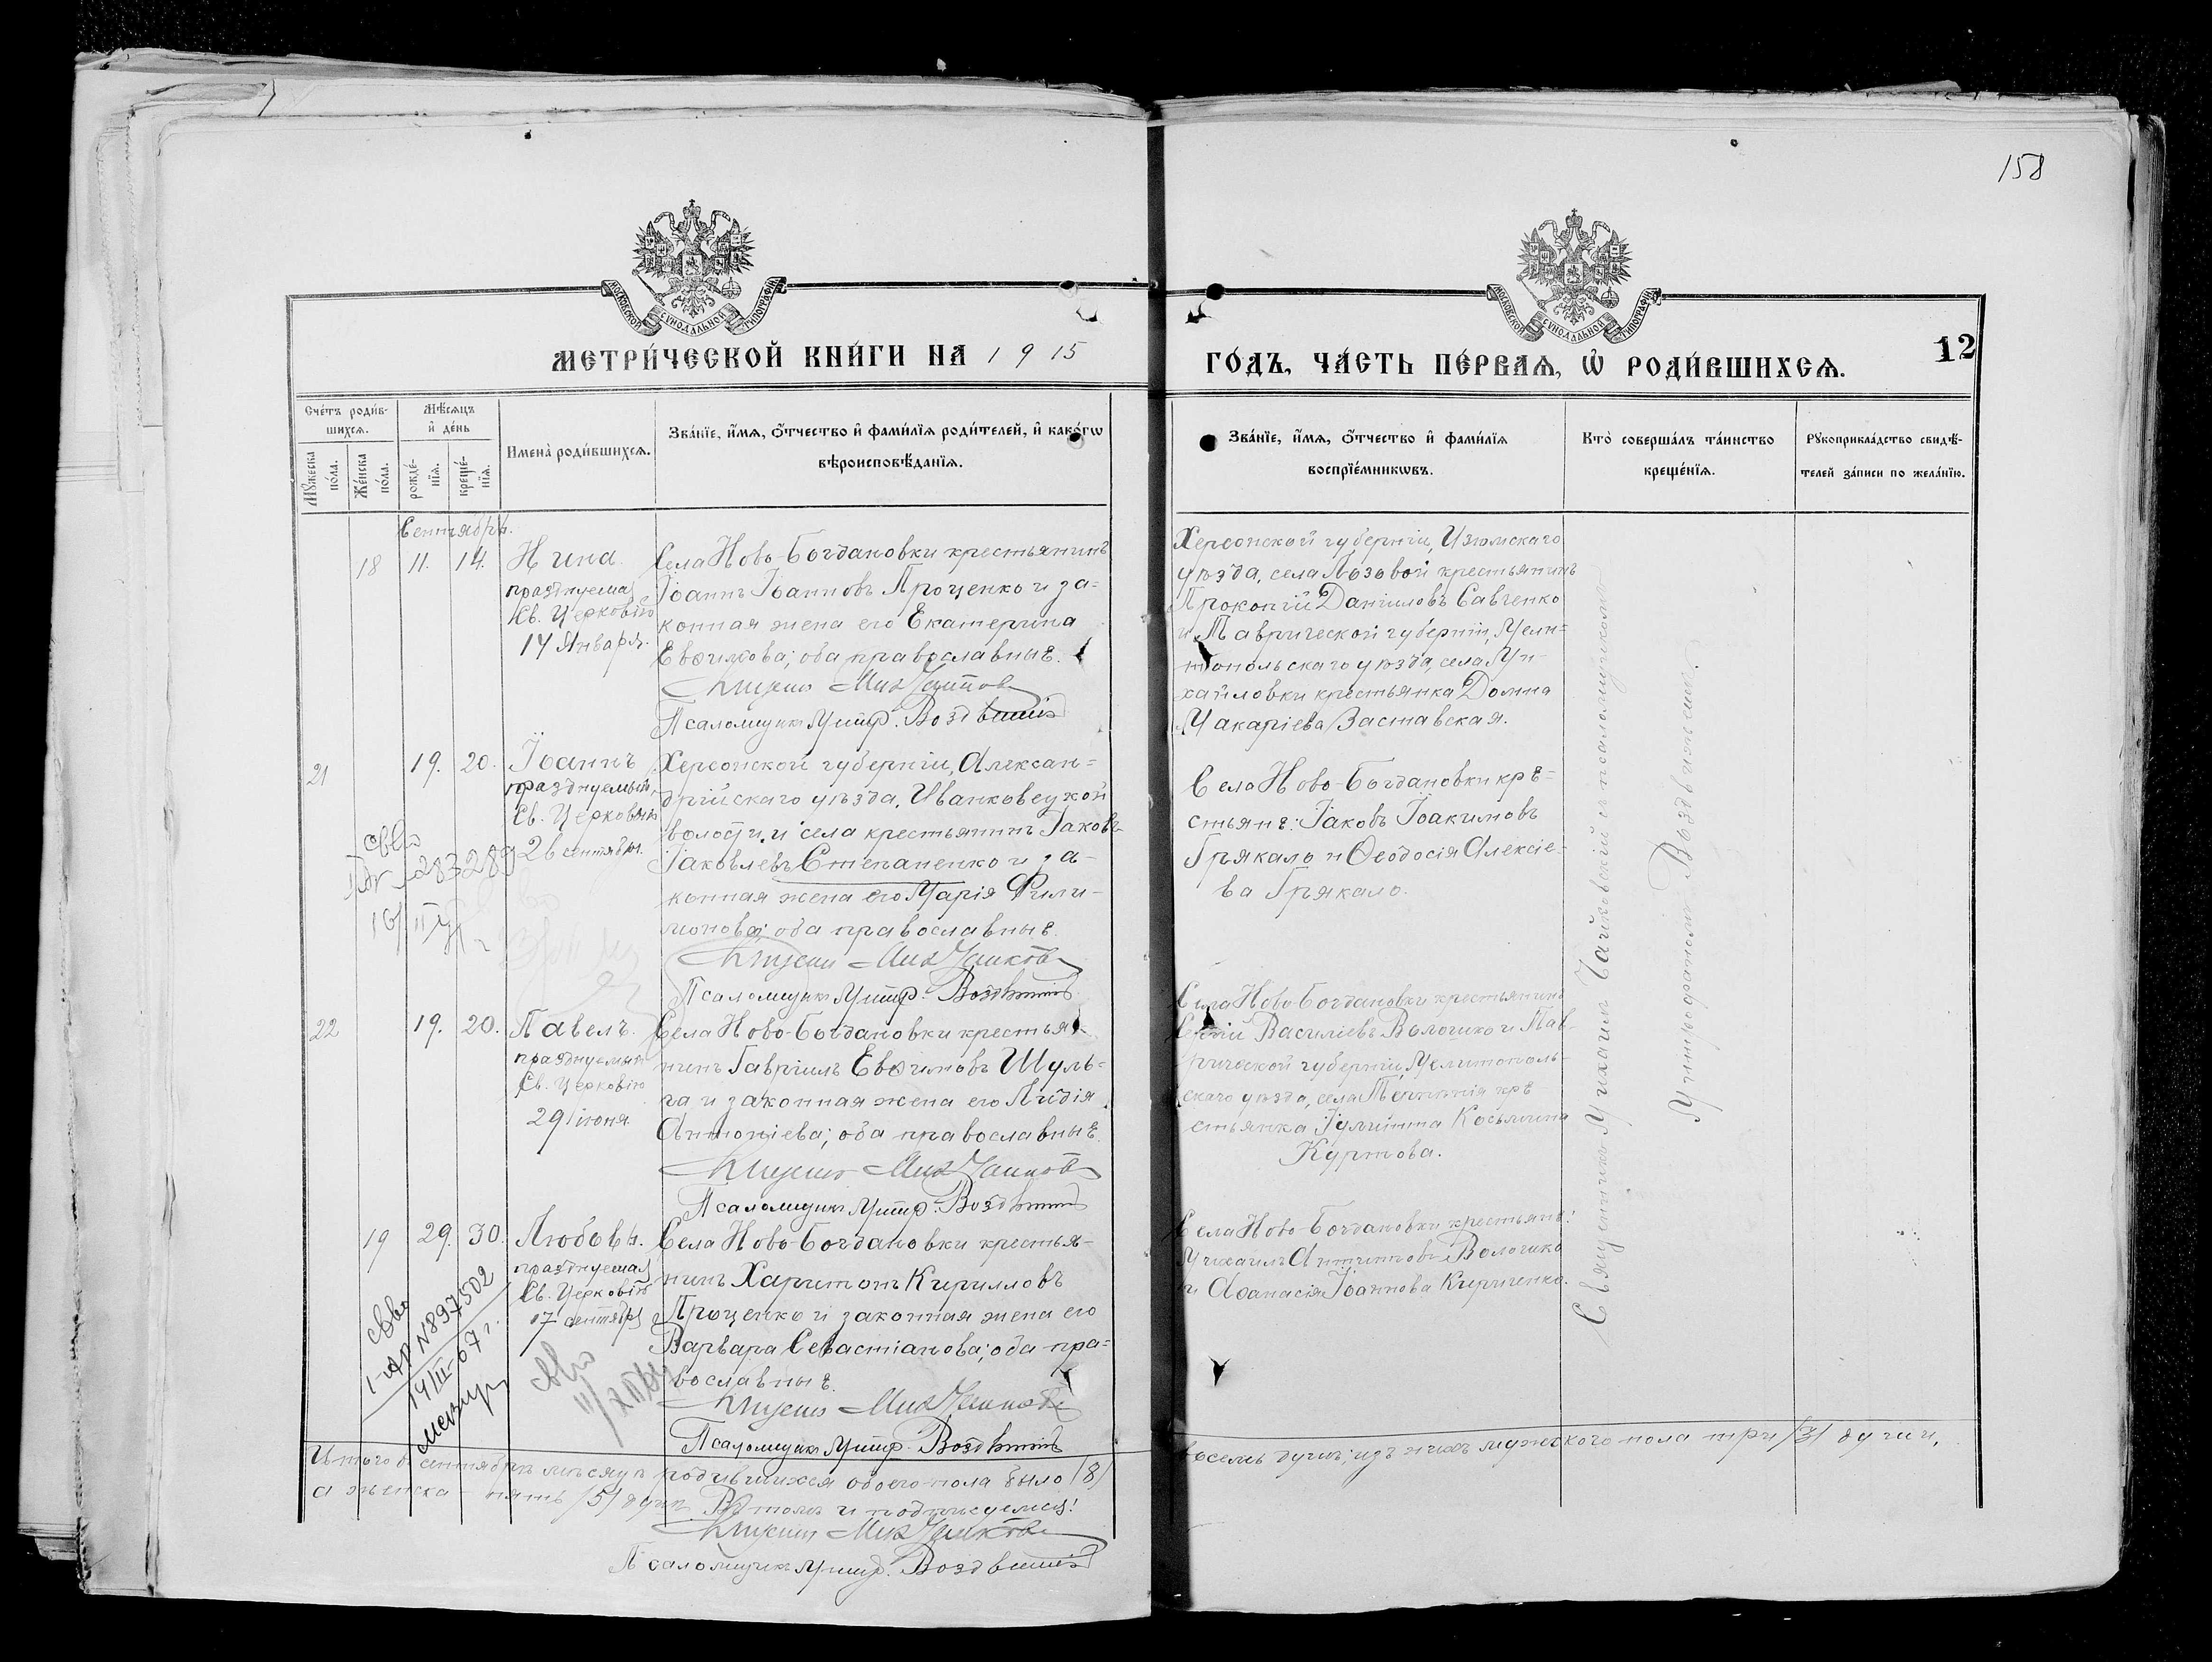 158
МОСКОВСКОЙ СѴНОДАЛЬНОЙ ТИПОГРАФІИ
МОСКОВСКОЙ СѴНОДАЛЬНОЙ ТИПОГРАФІИ
МЕТРИ́ЧЕСКОЙ КНИ́ГИ НА 1915
ГО́ДЪ, ЧА́СТЬ ПЕ́РВАѦ, Ѡ҆ РОДИ́ВШИХСѦ.
12
Сче́тъ роди́в-
шихсѧ.
Мѣ́сѧцъ
и҆ де́нь
Мꙋ́жеска
по́ла.
Же́нска
по́ла.
рожде́-
нїѧ.
креще́-
нїѧ.
Имена̀ роди́вшихсѧ.
Зва́нїе, и҆́мѧ, ѻ҆́тчество и҆ фами́лїѧ роди́телей, и҆ како́гѡ
вѣроисповѣ́данїѧ.
Зва́нїе, и҆́мѧ, ѻ҆́тчество и҆ фами́лїѧ
воспрїе́мникѡвъ.
Кто̀ соверша́лъ та́инство
креще́нїѧ.
Рꙋкоприкла́дство свидѣ́-
телей за́писи по жела́нїю.
Сентябрь.
18 11. 14. Нина
празднуемая
Св. Церковію
14 Января.
Села Ново-Богдановки крестьянинъ
Іоаннъ Іоанновъ Проценко и за-
конная жена его Екатерина
Евѳимова; оба православные.
Псаломщикъ Митр. Воздвиж
Херсонской губерніи, Изюмскаго
уѣзда, села Лозовой крестьянинъ
Прокопій Даніиловъ Савченко
и Таврической губерніи, Мели-
топольскаго уѣзда, села Ми-
хайловки крестьянка Домна
Макаріева Заставская.
21 19. 20. Іоаннъ
празднуемый
Св. Церковію
26 сентября.
Херсонской губерніи, Алексан-
дрійскаго уѣзда, Иванковецкой
волости и села крестьянинъ Іаковъ
Іаковлевъ Степаненко и за-
конная жена его Марія Фили-
монова; оба православные.
Псаломщикъ Митр. Воздвиж
Села Ново-Богдановки кре-
стьяне: Іаковъ Іоакимовъ
Грякало и Ѳеодосія Алексіе-
ва Грякало.
283289
22 19. 20. Павелъ.
празднуемый
Св. Церковію
29 іюня.
Села Ново-Богдановки крестья-
нинъ Гавріилъ Евѳимовъ Шуль-
га и законная жена его Лидія
Антоніева; оба православные.
Псаломщикъ Митр. Воздвиж
Села Ново-Богдановки крестьянинъ
Василіевъ Волошко и Тав-
рической губерніи, Мелитополь-
скаго уѣзда, села кре
стьянка Іулитта Косьмина
Куртова.
19 29. 30. Любовь.
празднуемая
Св. Церковію
17 сентября
Села Ново-Богдановки крестья-
нинъ Харитонъ Кирилловъ
Проценко и законная жена его
Варвара Севастіанова; оба пра-
вославные.
Псаломщикъ Митр. Воздвиж
Села Ново-Богдановки крестьяне:
Михаилъ Волошко
и Аѳанасія Іоаннова Кириченко.
№ 897502
14/III-67 г.
Священникъ Михаилъ съ псаломщикомъ
Митрофаномъ
Итого въ сентябрѣ мѣсяцѣ родившихся обоего пола было /8/
восемь душъ; изъ нихъ мужеского пола три /3/ души,
а женска - пять /5/ душъ. Въ томъ и подписуемся:
Псаломщикъ Митр. Воздвиж